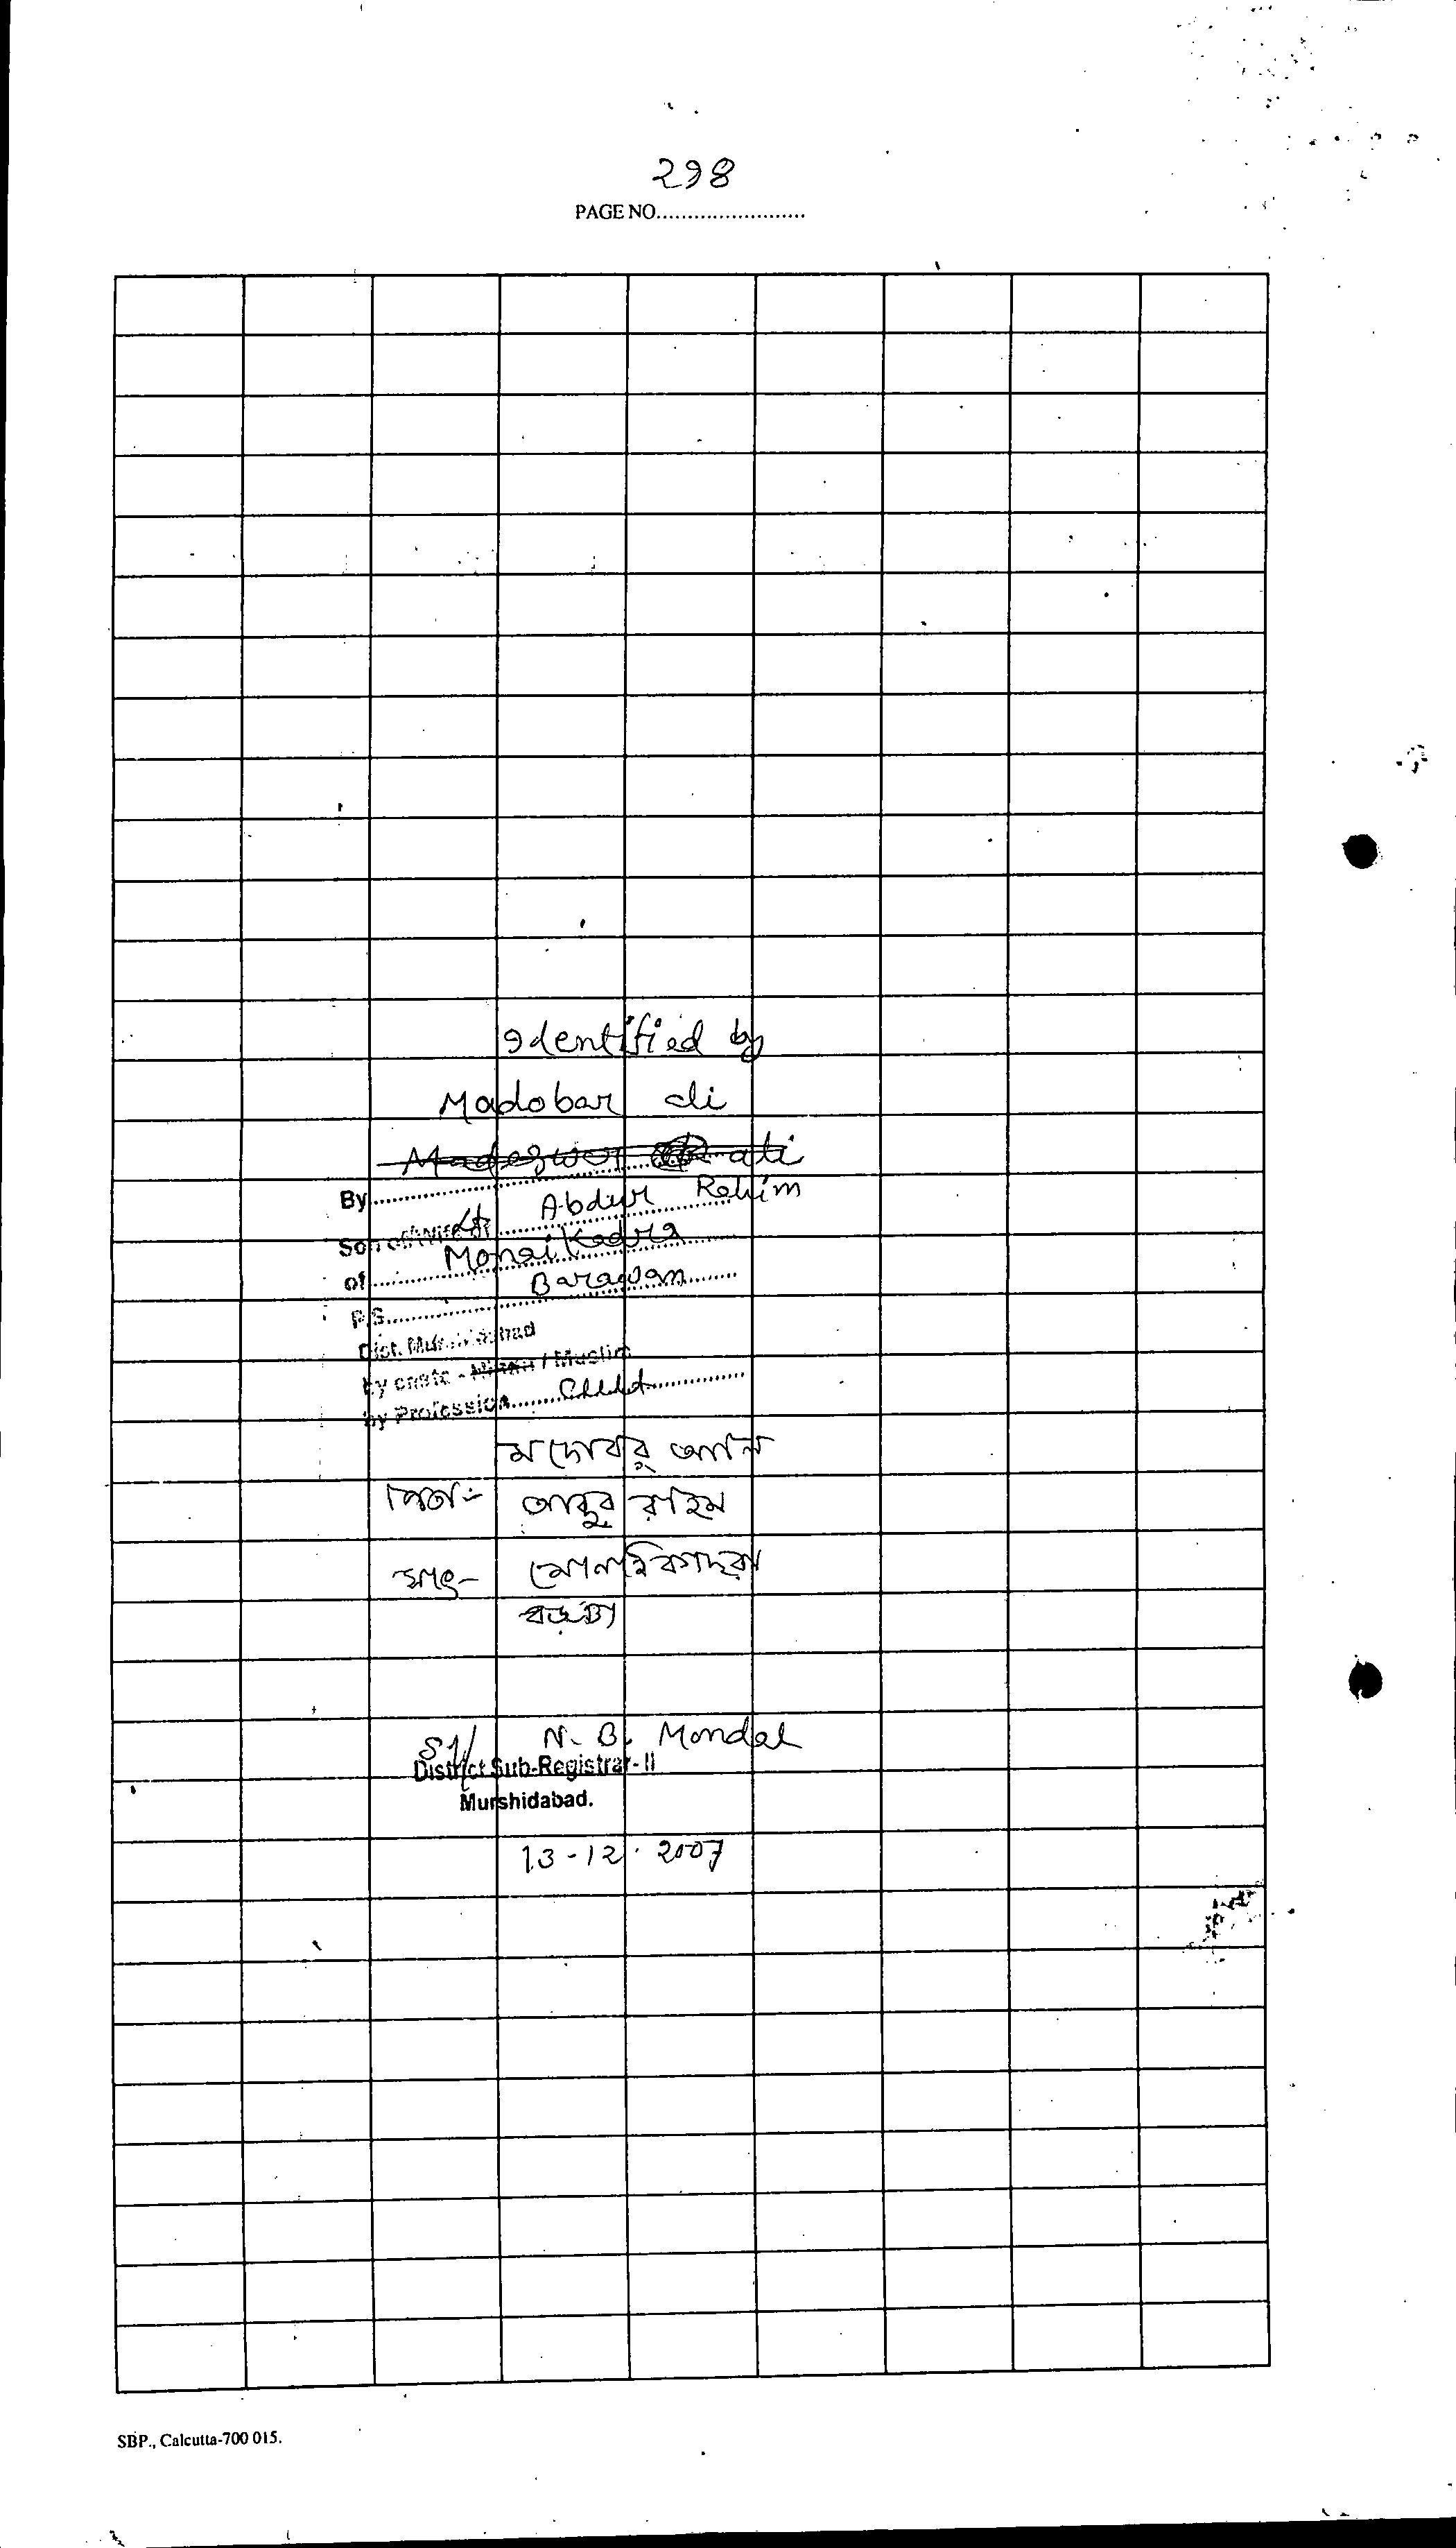 298
PAGE NO.........................
Identified by
Madobar ali
By
Abdur Rohim
Son of/Wife of Lt
of Monai Kadra
P.S. Barawan
Dist. Murshidabad
by caste - Hindu / Muslim
by Profession
মদোবর আলি
পিতা- আব্দুর রহিম
সাং- মোনাইকাদরা
বড়ঞা
Sd/ N. B. Mondal
District Sub-Registrar-II
Murshidabad.
13-12. 2007
SBP., Calcutta-700 015.